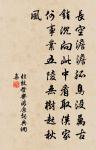 長空澹澹孤鳥沒萬古
銷沉向此中看取漢家
何事業五陵無樹起秋
風
杜牧登樂遊原